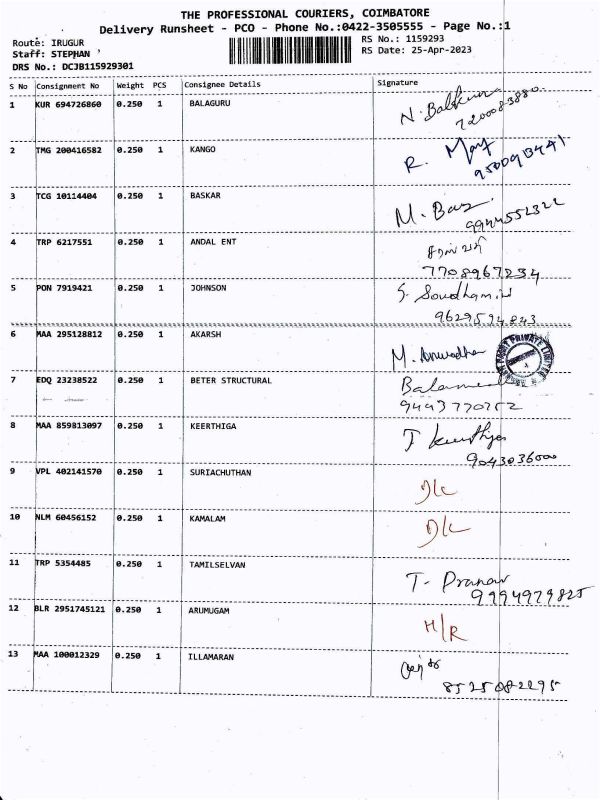 THE PROFESSIONAL COURIERS, COIMBATORE
Delivery Runsheet - PCO - Phone No.:0422-3505555 - Page No.:1
Route: IRUGUR
RS No.: 1159293
Staff: STEPHAN
RS Date: 25-Apr-2023
DRS No.: DCJB115929301
S No Consignment No Weight PCS Consignee Details Signature
1 KUR 694726860 0.250 1 BALAGURU N. Balkumar
7200083880
2 TMG 200416582 0.250 1 KANGO R. May
3 TCG 10114404 0.250 1 BASKAR M. Bas
9944552322
4 TRP 6217551 0.250 1 ANDAL ENT
7708967234
5 PON 7919421 0.250 1 JOHNSON S. Soudhamini
9629594843
6 MAA 295128812 0.250 1 AKARSH M. Anuradha
PRIVATE LIMITED
7 EDQ 23238522 0.250 1 BETER STRUCTURAL
9443770252
8 MAA 859813097 0.250 1 KEERTHIGA T Keerthiga
9043036000
9 VPL 402141570 0.250 1 SURIACHUTHAN D/L
10 NLM 60456152 0.250 1 KAMALAM D/L
11 TRP 5354485 0.250 1 TAMILSELVAN T. Pranav
9994979825
12 BLR 2951745121 0.250 1 ARUMUGAM H/R
13 MAA 100012329 0.250 1 ILLAMARAN
8525082295